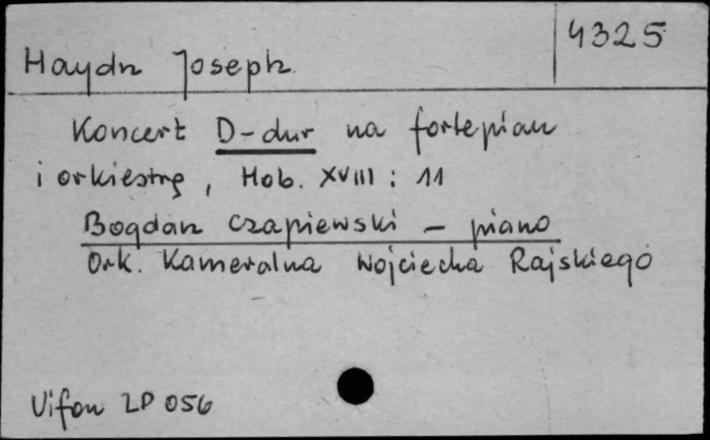 4325
Haydn Joseph
Koncert D-dur na fortepian
i orkiestrę, Hob. XVIII : 11
Bogdan Czapiewski - piano
Ork. Kameralna Wojciecha Rajskiego
Vifon LP 056